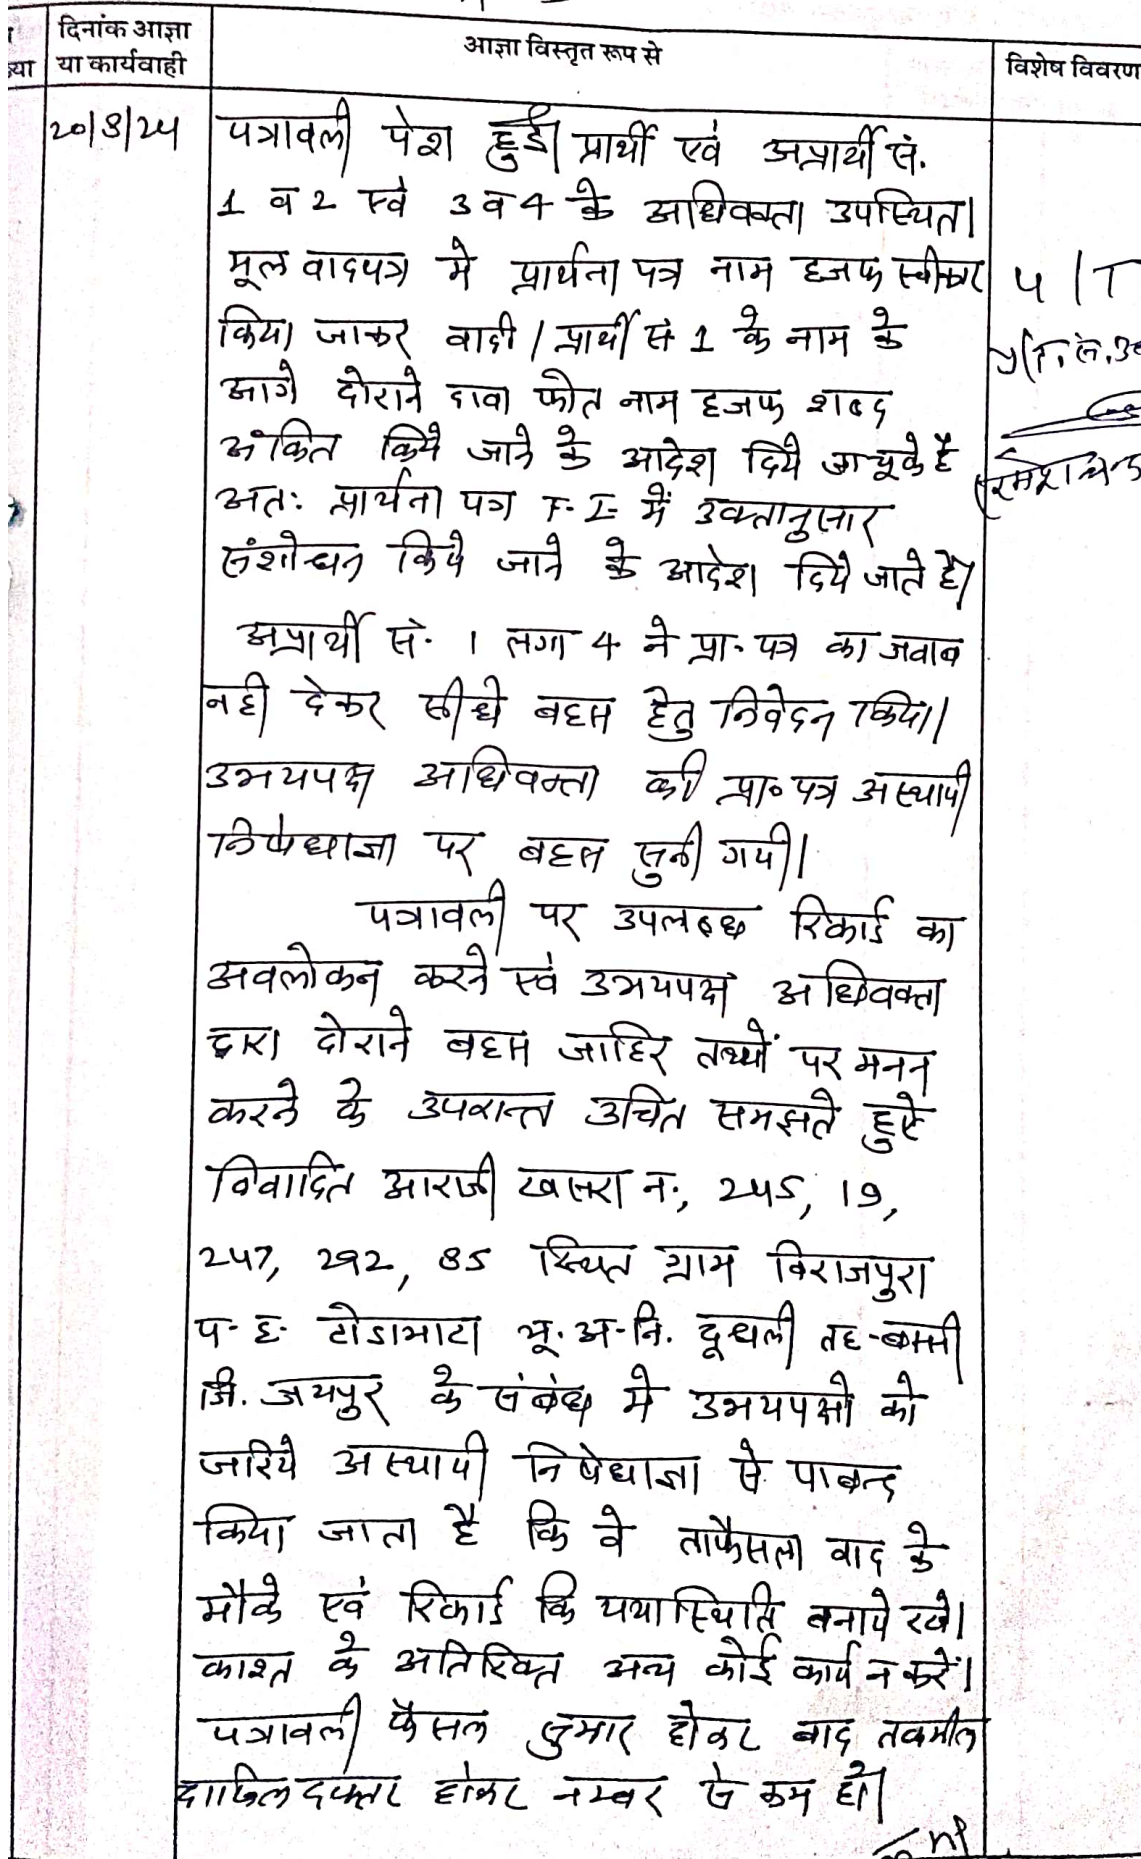 दिनांक आज्ञा
या कार्यवाही
आज्ञा विस्तृत रूप से
विशेष विवरण
20/3/24
पत्रावली पेश हुई। प्रार्थी एवं अप्रार्थी सं.
1 व 2 एवं 3 व 4 के अधिवक्ता उपस्थित।
मूल वादपत्र मे प्रार्थना पत्र नाम हजफ स्वीकार
किया जाकर वादी / प्रार्थी सं 1 के नाम के
आगे दोराने दावा फोत नाम हजफ शब्द
अंकित किये जाने के आदेश दिये जा चूके है
अतः प्रार्थना पत्र T-I- में उक्तानुसार
संशोधन किये जाने के आदेश दिये जाते है।
अप्रार्थी सं. 1 लगा 4 ने प्रा. पत्र का जवाब
नही देकर सीधे बहस हेतु निवेदन किया।
उभयपक्ष अधिवक्ता की प्रा० पत्र अस्थायी
निषेधाज्ञा पर बहस सुनी गयी।
पत्रावली पर उपलब्ध रिकार्ड का
अवलोकन करने एवं उभयपक्ष अधिवक्ता
द्वारा दोराने बहस जाहिर तथ्यों पर मनन
करने के उपरान्त उचित समझते हुऐ
विवादित आराजी खसरा न., 245, 19,
247, 292, 85 स्थित ग्राम विराजपुरा
प. ह. टोडाभाटा भू. अ. नि. दूधली तह-बस्सी
जि. जयपुर के संबंध मे उभयपक्षो को
जरिये अस्थायी निषेधाज्ञा से पाबन्द
किया जाता है कि वे ताफैसला वाद के
मौके एवं रिकार्ड कि यथास्थिति बनाये रखे।
काश्त के अतिरिक्त अन्य कोई कार्य न करें।
पत्रावली फैसल शुमार होकर बाद तकमील
दाखिल दफ्तर होकर नम्बर से कम हो।